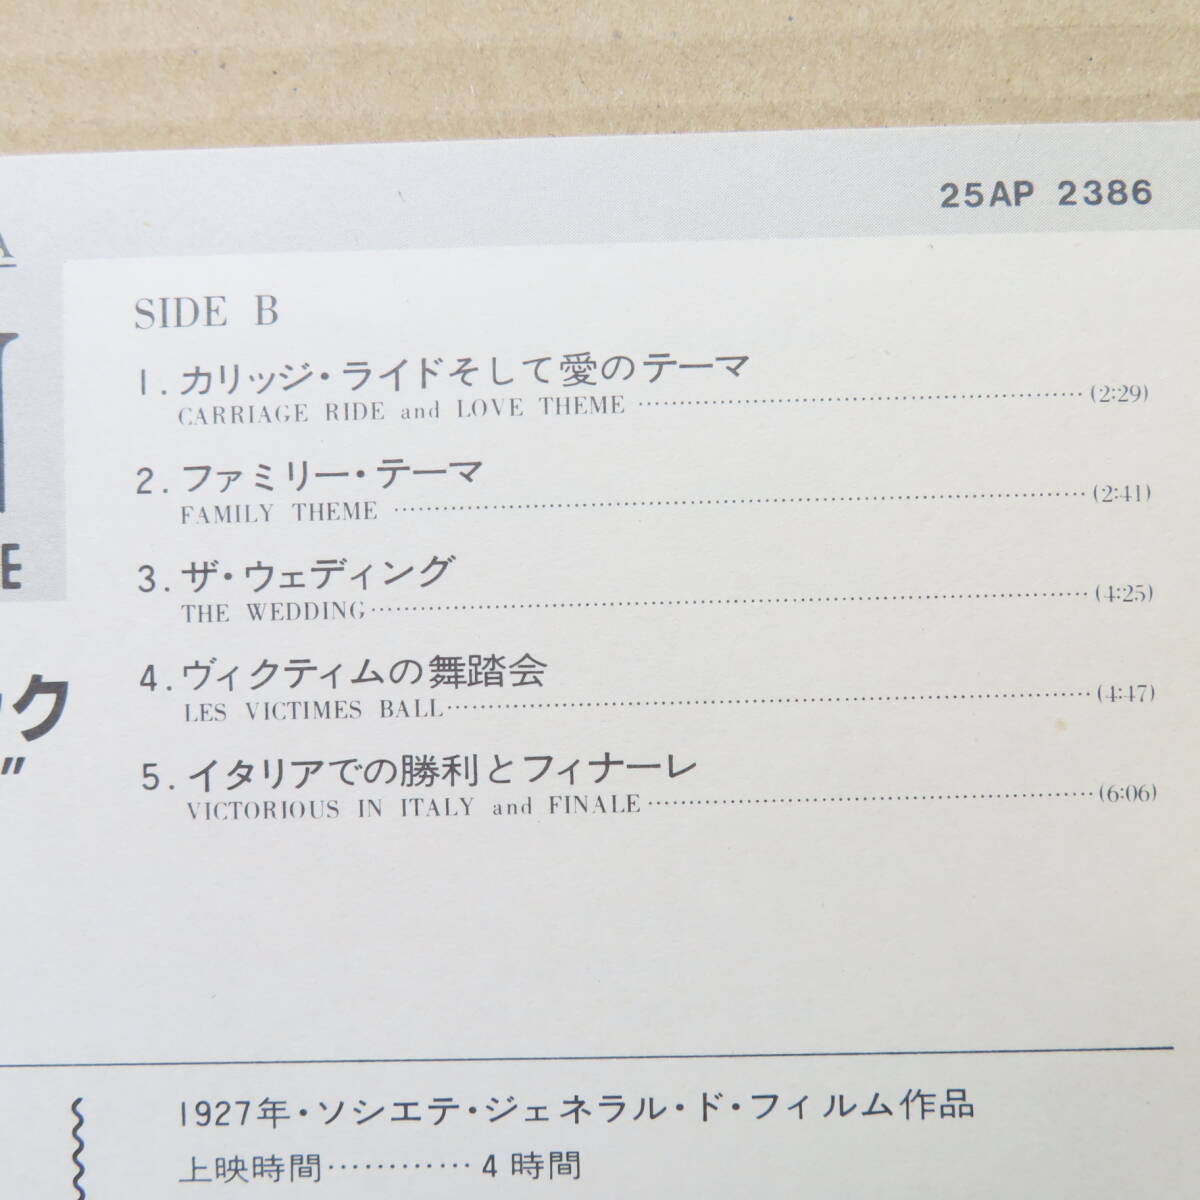 25AP 2386
A
N
E
ック
"
SIDE B
1. カリッジ・ライドそして愛のテーマ
CARRIAGE RIDE and LOVE THEME ………(2:29)
2. ファミリー・テーマ
FAMILY THEME ………(2:41)
3. ザ・ウェディング
THE WEDDING………(4:25)
4. ヴィクティムの舞踏会
LES VICTIMES BALL………(4:47)
5. イタリアでの勝利とフィナーレ
VICTORIOUS IN ITALY and FINALE………(6:06)
1927年・ソシエテ・ジェネラル・ド・フィルム作品
上映時間…………4時間